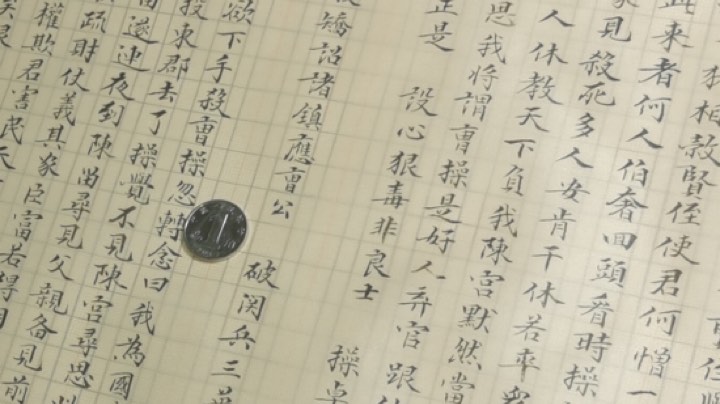 相款賢侄使君何憎一
此来者何人伯奢回頭看時操
家見殺死多人安肯干休若率衆
人休教天下負我陳宫默然當
思我將謂曹操是好人弃官跟
正是 設心狠毒非良士 操卓
發矯詔諸鎮應曹公 破関兵三英
欲下手殺曹操忽轉念曰我為國
投東郡去了操覺不見陳宫尋思
遂連夜到陳留尋見父親备見前
疏財仗義其家臣富若得相
權欺君害民天
1